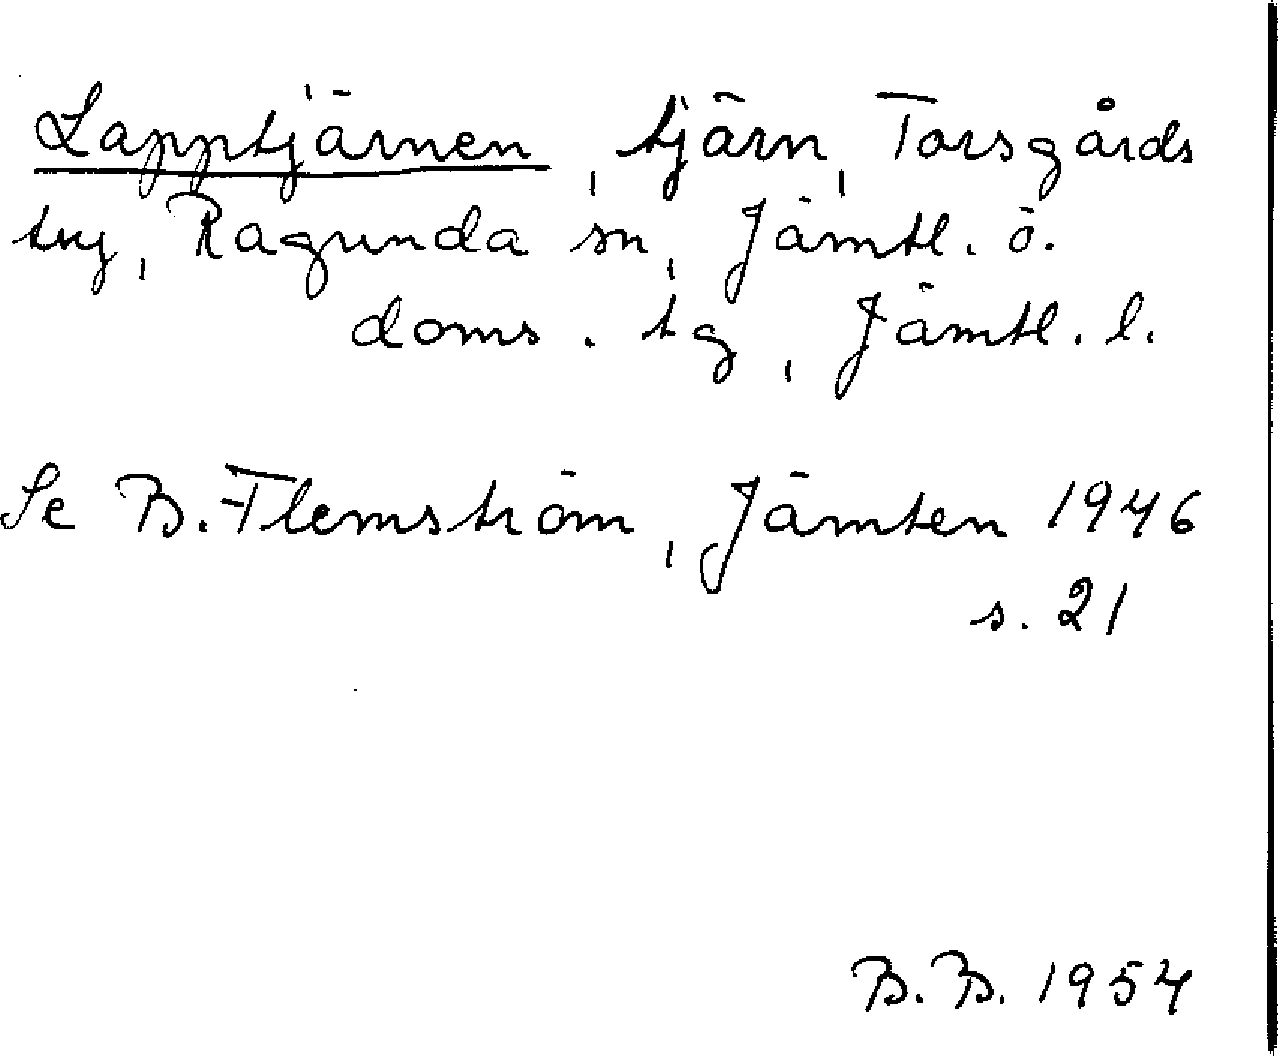 Lapptjärnen, tjärn, Torsgårds
tng, Ragunda sn, Jämtl. ö.
doms. tg, Jämtl. l.
Se B. Flemström, Jämten 1946
s. 21
B.B. 1954